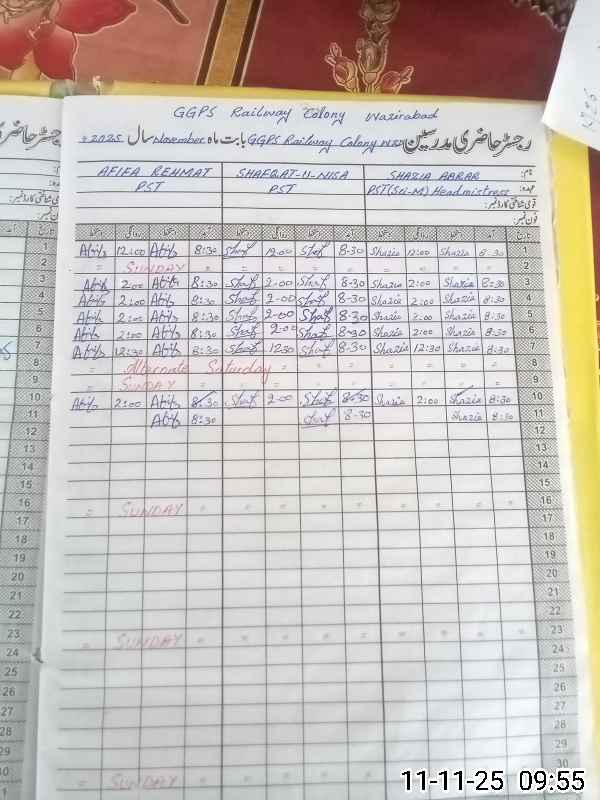 GGPS Railway Colony Wazirabad
رجسٹر حاضری مدرسین GGPS Railway Colony Wzd بابت ماہ November سال 2025
AFIFA REHMAT SHAFQAT-U-NISA SHAZIA ABRAR نام:
PST PST PST(Sci-M) Headmistress عہدہ:
قومی شناختی کارڈ نمبر:
فون نمبر:
دستخط روانگی دستخط آمد دستخط روانگی دستخط آمد دستخط روانگی دستخط آمد تاریخ
Afifa 12:00 Afifa 8:30 Shaf 12:00 Shaf 8-30 Shazia 12:00 Shazia 8:30 1
= SUNDAY = = = = = = = = = 2
Afifa 2:00 Afifa 8:30 Shaf 2-00 Shaf 8-30 Shazia 2:00 Shazia 8:30 3
Afifa 2:00 Afifa 8:30 Shaf 2-00 Shaf 8-30 Shazia 2:00 Shazia 8:30 4
Afifa 2:00 Afifa 8:30 Shaf 2-00 Shaf 8-30 Shazia 2:00 Shazia 8:30 5
Afifa 2:00 Afifa 8:30 Shaf 2:00 Shaf 8-30 Shazia 2:00 Shazia 8:30 6
Afifa 12:30 Afifa 8:30 Shaf 1230 Shaf 8-30 Shazia 12:30 Shazia 8:30 7
= Alternate Saturday = = = = = = = 8
= SUNDAY = = = = = = = = = 9
Afifa 2:00 Afifa 8:30 Shaf 2-00 Shaf 8-30 Shazia 2:00 Shazia 8:30 10
Afifa 8:30 Shaf 8-30 Shazia 8:30 11
12
13
14
15
= SUNDAY = = = = = = = = = 16
17
18
19
20
21
22
= SUNDAY = = = = = = = = = 23
24
25
26
27
28
29
= SUNDAY = = = =
11-11-25 09:55